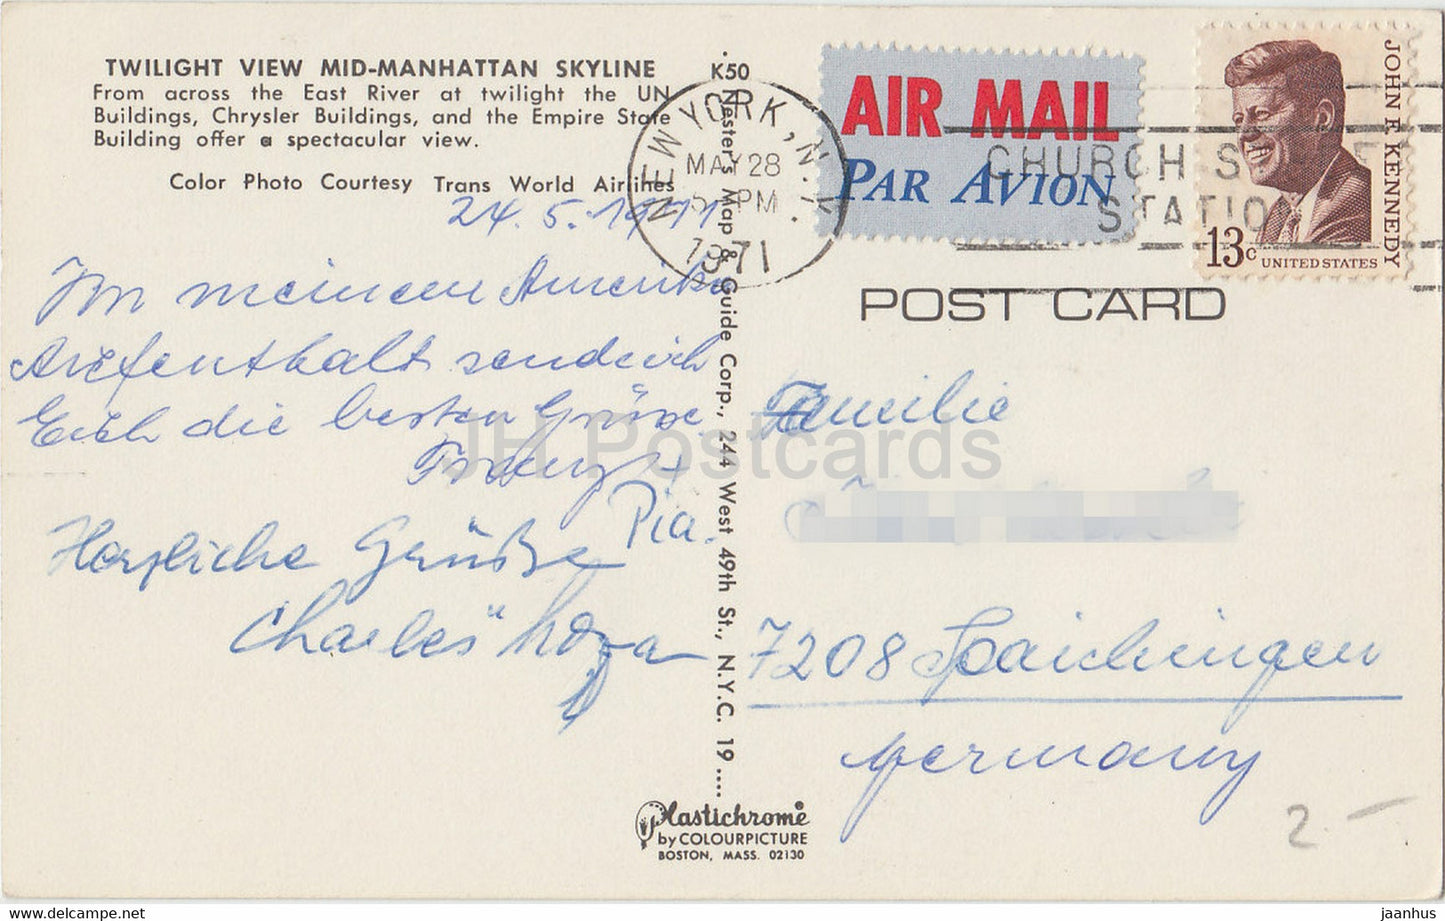 TWILIGHT VIEW MID-MANHATTAN SKYLINE
From across the East River at twilight the UN
Buildings, Chrysler Buildings, and the Empire State
Building offer a spectacular view.
Color Photo Courtesy Trans World Airlines
24. 5. 1971
Im meinem Amerika
Aufenthalt sende ich
Euch die besten Grüsse
Franz +
Pia.
Herzliche Grüße
Charles
K50
Nester's Map & Guide Corp., 244 West 49th St., N.Y.C. 19....
Plastichrome
by COLOURPICTURE
BOSTON, MASS. 02130
NEW YORK, N.Y.
MAY 28
PM
1971
AIR MAIL
PAR AVION
CHURCH
JOHN F. KENNEDY
13c UNITED STATES
POST CARD
Familie
7208 Spaichingen
Germany
2.-
JH Postcards
www.delcampe.net
jaanhus